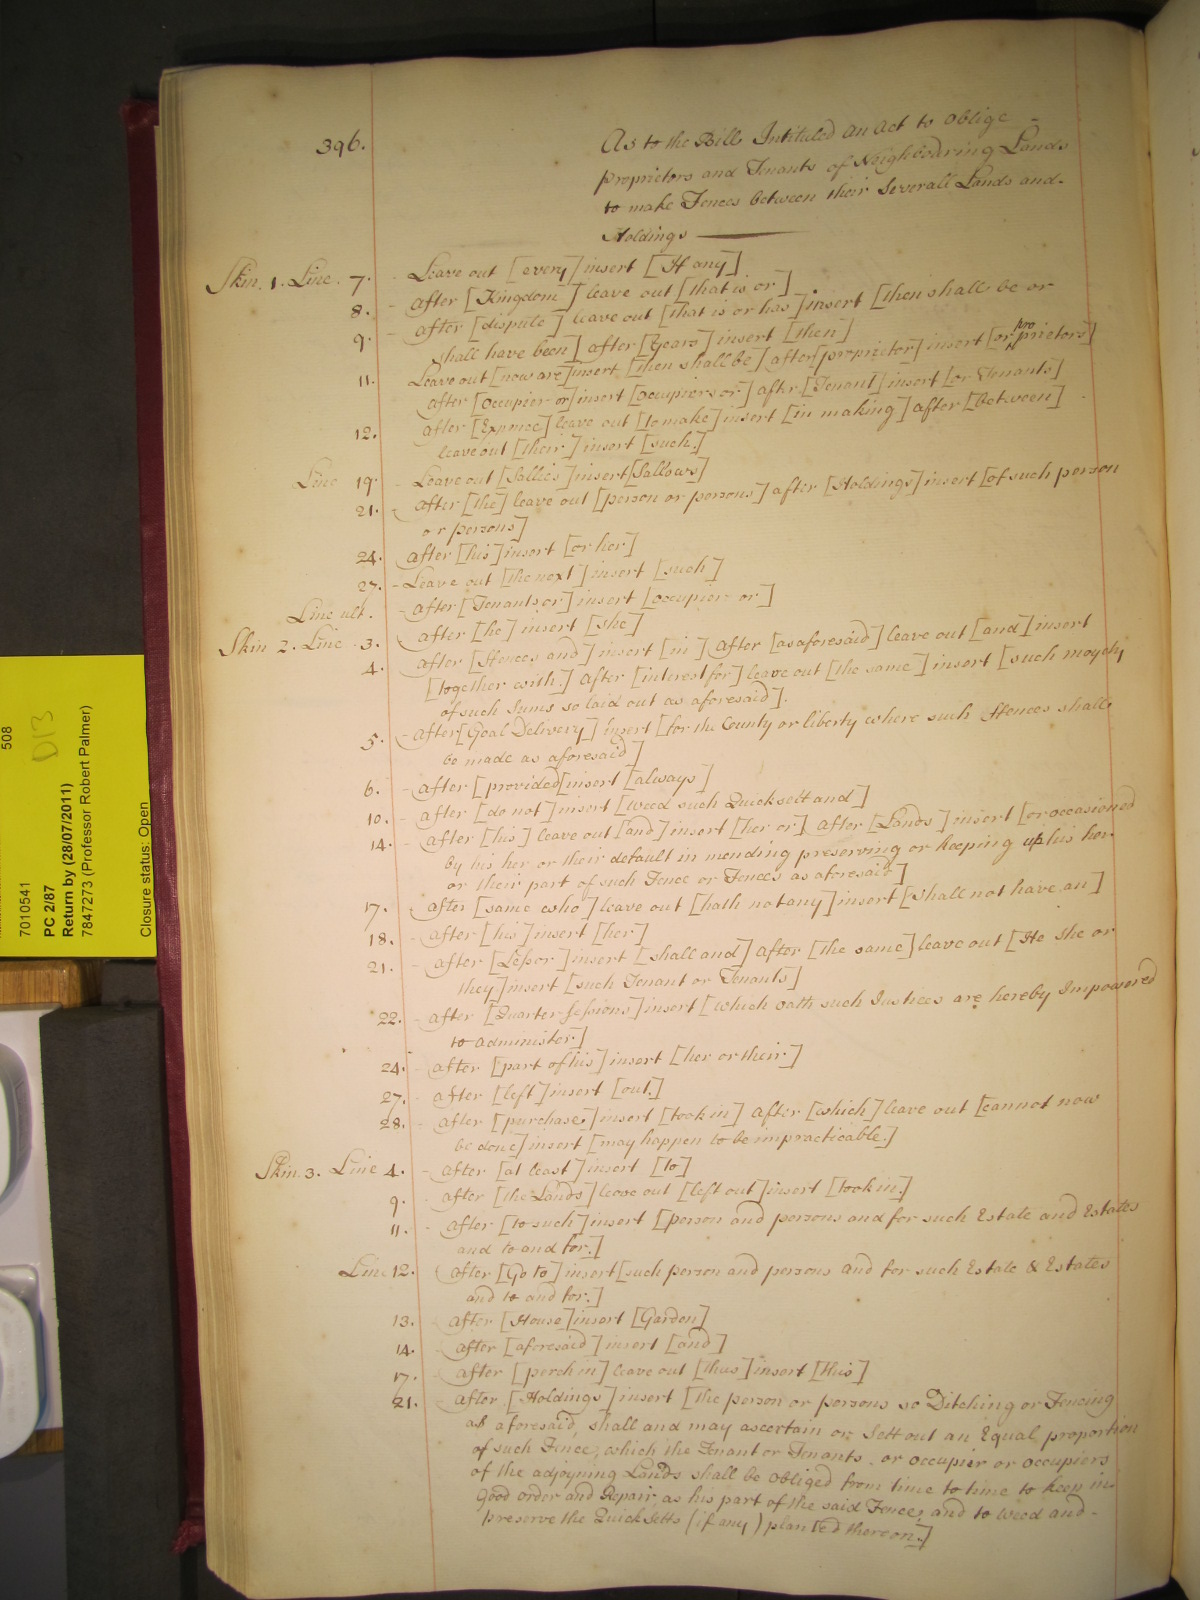 396.
As to the Bill Intituled an Act to Oblige
proprietors and Tenants of Neighbouring Lands
to make Fences between their Severall Lands and
Holdings
Skin. 1. Line. 7. Leave out [every] insert [If any]
8. after [Kingdom] leave out [that is or]
9. after [dispute] leave out [that is or has] insert [then shall be or
shall have been] after [Years] insert [then]
11. Leave out [now are] insert [then shall be] after [proprietor] insert [or proprietors]
after [occupier or] insert [occupiers or] after [Tenant] insert [or Tenants]
12. after [Expence] leave out [to make] insert [in making] after [between]
leave out [their] insert [such.]
Line 19. Leave out [Sallies] insert [Sallows]
21. after [the] leave out [person or persons] after [Holdings] insert [of such person
or persons]
24. after [his] insert [or her]
27. Leave out [the next] insert [such]
Line ult. after [Tenants or] insert [occupier or]
Skin 2. Line 3. after [he] insert [she]
4. after [ffences and] insert [in] after [as aforesaid] leave out [and] insert
[together with] after [interest for] leave out [the same] insert [such moyety
of such Sums so laid out as aforesaid].
5. after [Goal Delivery] insert [for the County or liberty where such ffences shall
be made as aforesaid]
6. after [provided] insert [always]
10. after [do not] insert [weed such Quicksett and]
14. after [his] leave out [and] insert [her or] after [Lands] insert [or occasioned
by his her or their default in mending preserving or keeping up his her
or their part of such Fence or Fences as aforesaid]
17. after [same who] leave out [hath not any] insert [shall not have an]
18. after [his] insert [her]
21. after [Lessor] insert [shall and] after [the same] leave out [He she or
they] insert [such Tenant or Tenants]
22. after [Quarter Sessions] insert [which oath such Justices are hereby Impowered
to administer.]
24. after [part of his] insert [her or their]
27. after [left] insert [out.]
28. after [purchase] insert [took in] after [which] leave out [cannot now
be done] insert [may happen to be impracticable.]
Skin. 3. Line 4. after [at least] insert [to]
9. after [the Lands] leave out [left out] insert [took in.]
11. after [to such] insert [person and persons and for such Estate and Estates
and to and for.]
Line 12. after [Go to] insert [such person and persons and for such Estate & Estates
and to and for.]
13. after [House] insert [Garden]
14. after [aforesaid] insert [and]
17. after [perch in] leave out [thus] insert [this]
21. after [Holdings] insert [the person or persons so Ditching or Fencing
as aforesaid, shall and may ascertain or Sett out an Equal proportion
of such Fence, which the Tenant or Tenants, or occupier or occupiers
of the adjoyning Lands shall be obliged from time to time to keep in
Good order and Repair as his part of the said Fence, and to weed and
preserve the Quick Setts (if any) planted thereon.]
508
D13
7010541
PC 2/87
Return by (28/07/2011)
7847273 (Professor Robert Palmer)
Closure status: Open